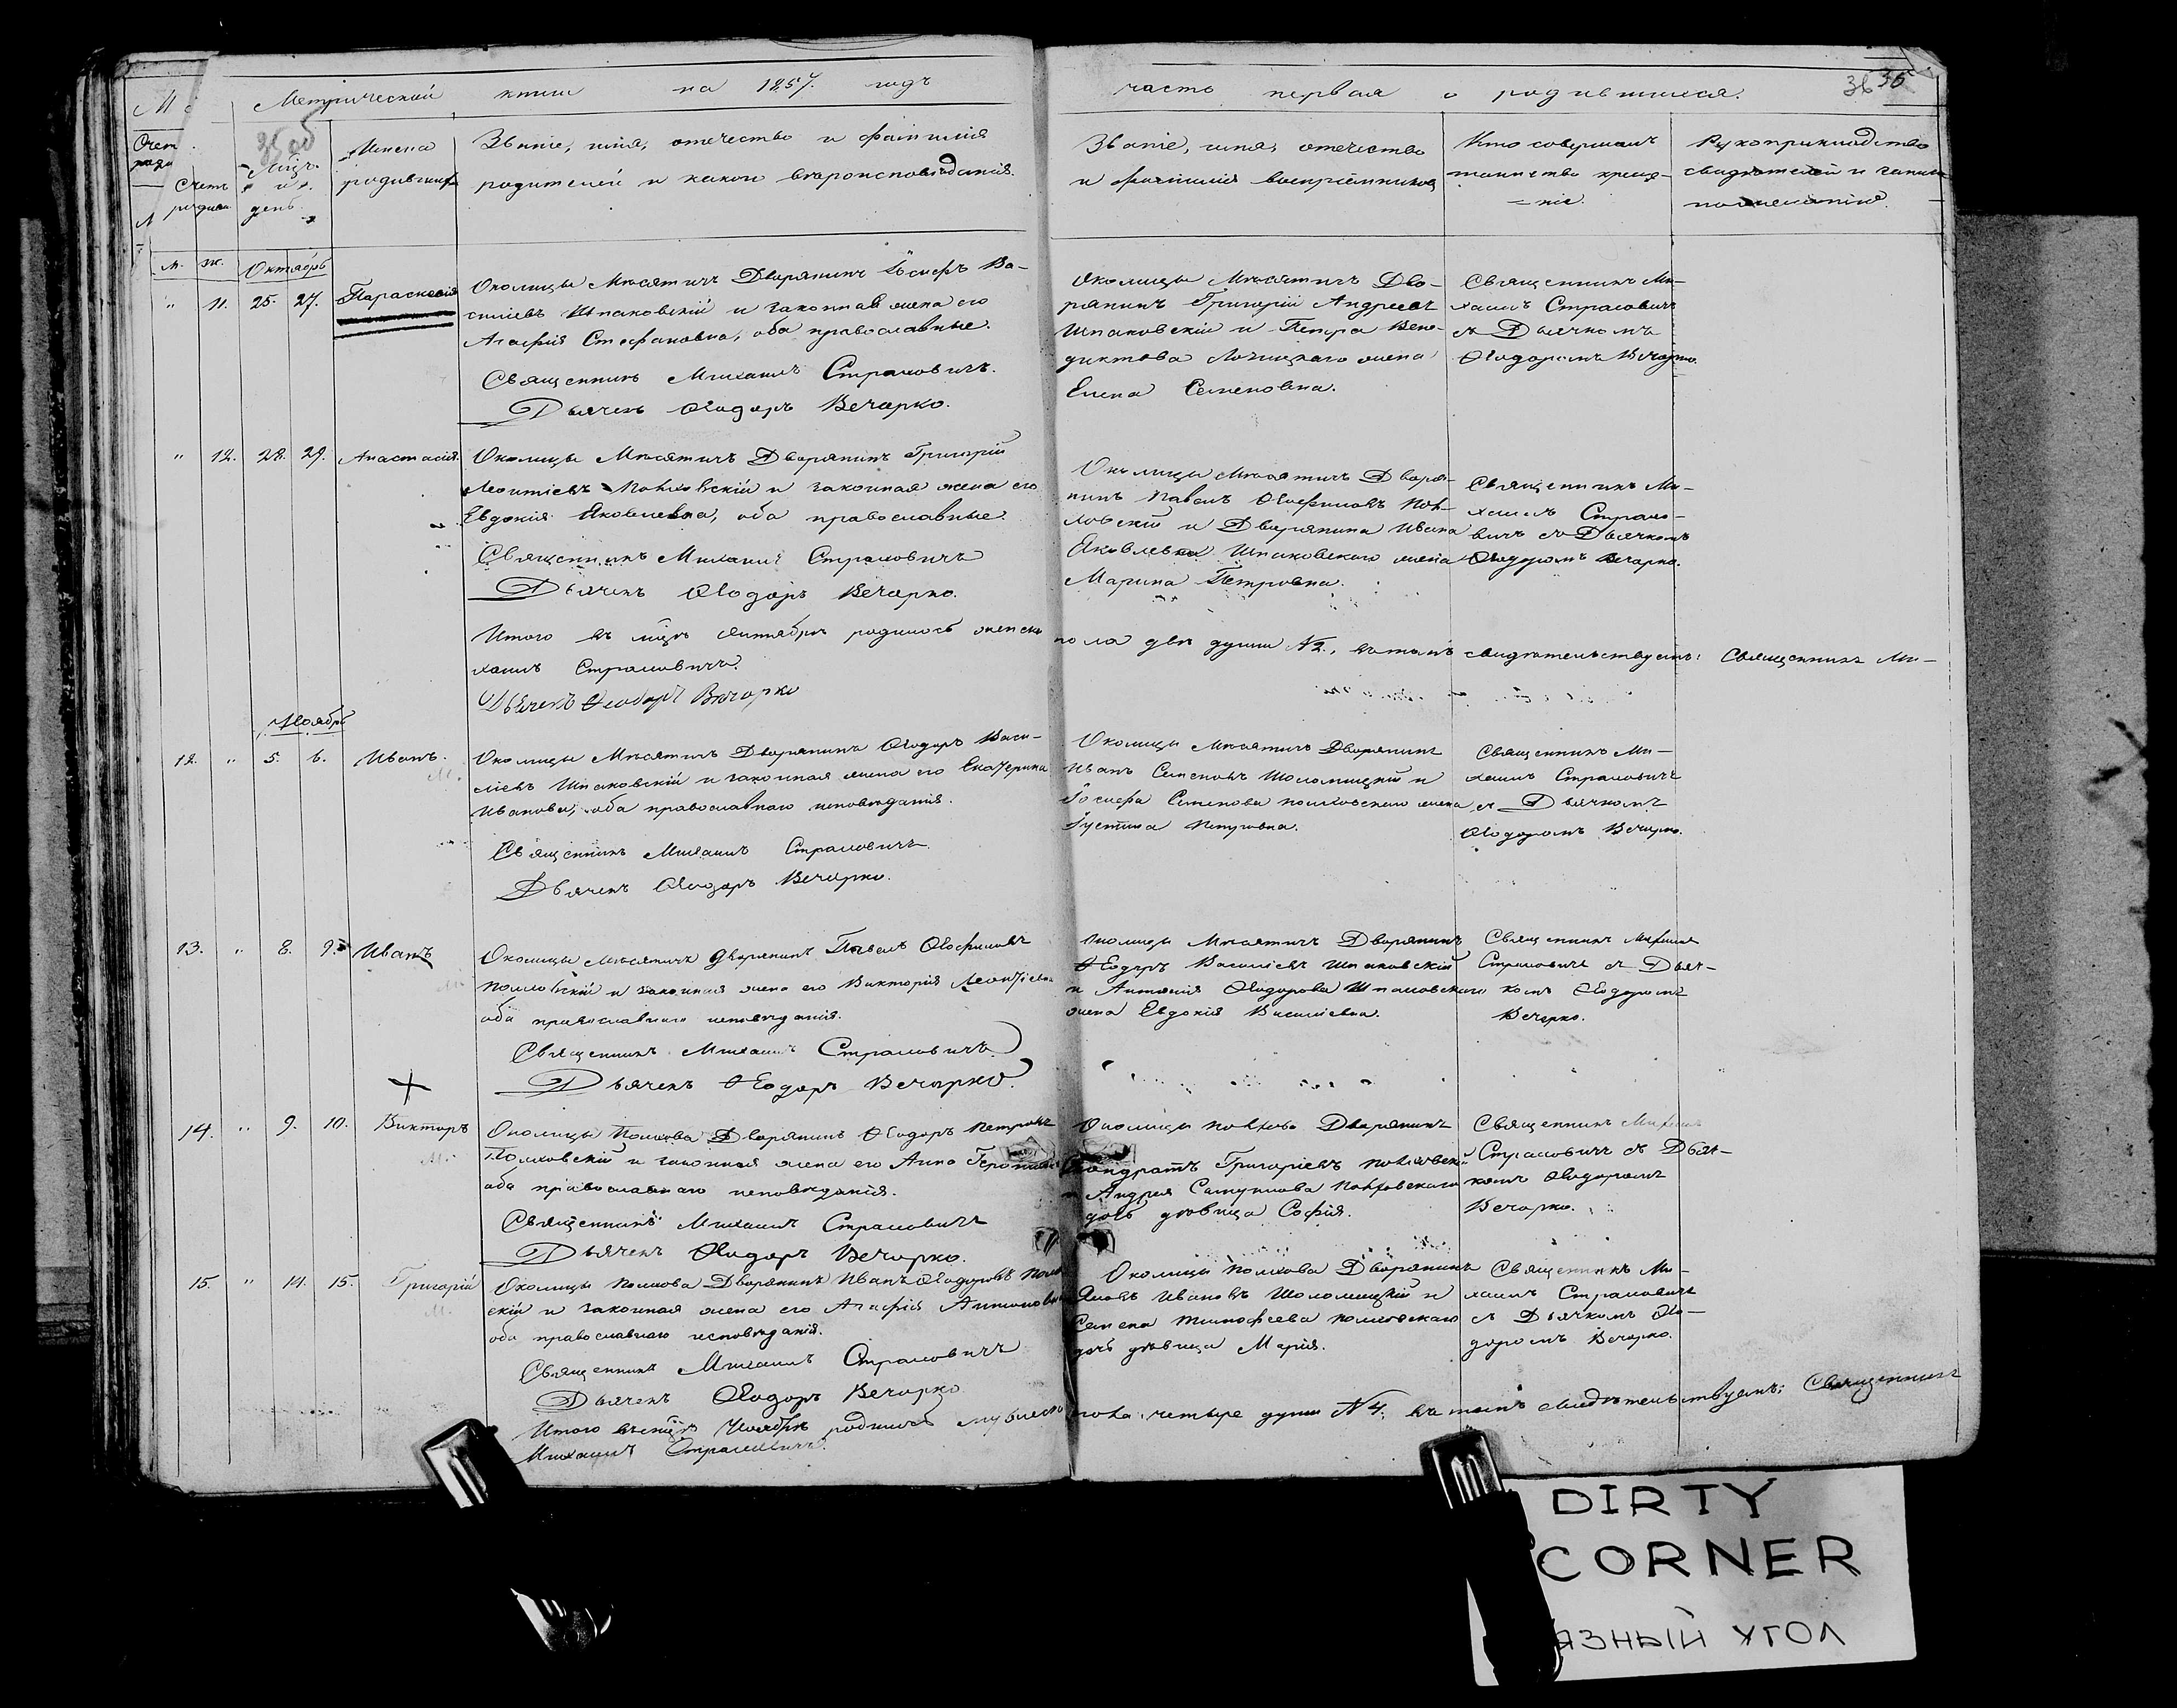 Метрической книги на 1857. годъ
часть первая о родившихся.
36 35
35 об
Счетъ родив.
Мѣцъ и день.
Имена родивших
Званіе, имя, отечество и фамилія
родителей и какого вѣроисповѣданія.
Званіе, имя, отечество
и фамилія воспріемниковъ
Кто совершалъ
таинство креще-
ніе.
Рукоприкладство
свидѣтелей и записи
по желанію.
м. ж. Октябрь
" 11. 25. 27. Параскевія
Околицы Мнсятичъ Дворянинъ Іосифъ Ва-
силіевъ Шпаковскій и законная жена его
Агафія Стефановна, оба православные.
Священникъ Михаилъ Страховичъ.
Дьячекъ Ѳеодоръ Вечорко.
Околицы Мнсятичъ Дво-
рянинъ Григорій Андреевъ
Шпаковскій и Петра Вене-
диктова жена
Елена Семеновна.
Священникъ Ми-
хаилъ Страховичъ
съ Дьячкомъ
Ѳеодоромъ Вечорко.
" 12. 28. 29. Анастасія.
Околицы Мнсятичъ Дворянинъ Григорій
Леонтіевъ и законная жена его
Евдокія Яковлевна, оба православные.
Священникъ Михаилъ Страховичъ
Дьячекъ Ѳеодоръ Вечорко.
Околицы Мнсятичъ Дворя-
нинъ Павелъ
и Дворянина Ивана
Яковлева Шпаковского жена
Марина Петровна.
Священникъ Ми-
хаилъ Страхо-
вичъ съ Дьячкомъ
Ѳеодоромъ Вечорко.
Итого въ мцѣ Октябрѣ родилось женска пола двѣ души №2., въ томъ свидѣтельствуемъ: Священникъ Ми-
хаилъ Страховичъ.
Дьячекъ Ѳеодоръ Вечорко
Ноябрь
12. " 5. 6. Иванъ.
Околицы Мнсятичъ Дворянинъ Ѳеодоръ Васи-
ліевъ Шпаковскій и законная жена его Екатерина
Иванова, оба православнаго исповѣданія.
Священникъ Михаилъ Страховичъ
Дьячекъ Ѳеодоръ Вечорко.
Околицы Мнсятичъ Дворянинъ
Иванъ Семеновъ Шоломицкій и
Іосифа Семенова Полховскаго жена
Іустина Петровна.
Священникъ Ми-
хаилъ Страховичъ
съ Дьячкомъ
Ѳеодоромъ Вечорко.
13. " 8. 9. Иванъ
Околицы Мнсятичъ Дворянинъ Павелъ
Полховскій и законная жена его Викторія Леонтіева
оба православнаго исповѣданія.
Священникъ Михаилъ Страховичъ
Дьячекъ Ѳеодоръ Вечорко.
Околицы Мнсятичъ Дворянинъ
Ѳеодоръ Василіевъ Шпаковскій
и Антонія Ѳеодорова Шпаковскаго
жена Евдокія Василіевна.
Священникъ Михаилъ
Страховичъ съ Дьяч-
комъ Ѳеодоромъ
Вечорко.
14. " 9. 10. Викторъ
Околицы Полхова Дворянинъ Ѳеодоръ Петровъ
Полховскій и законная жена его Анна
оба православнаго исповѣданія.
Священникъ Михаилъ Страховичъ
Дьячекъ Ѳеодоръ Вечорко.
Околицы Полхова Дворянинъ
Кондратъ Григоріевъ Полховскій
и Андрея Полховскаго
дочь дѣвица Софія.
Священникъ Михаилъ
Страховичъ съ Дьяч-
комъ Ѳеодоромъ
Вечорко.
15. " 14. 15. Григорій
Околицы Полхова Дворянинъ Иванъ Ѳеодоровъ Полхов
скій и законная жена его Агафія Антоновна
оба православнаго исповѣданія.
Священникъ Михаилъ Страховичъ
Дьячекъ Ѳеодоръ Вечорко
Околицы Полхова Дворянинъ
Яковъ Ивановъ Шоломицкій и
Семена Тимофеева Полховскаго
дочь дѣвица Марія.
Священникъ Ми-
хаилъ Страховичъ
съ Дьячкомъ Ѳео-
доромъ Вечорко.
Итого въ мцѣ Ноябрѣ родилось мужеска пола: четыре души №4. въ томъ свидѣтельствуемъ: Священникъ
Михаилъ Страховичъ.
DIRTY
CORNER
ЯЗНЫЙ УГОЛ